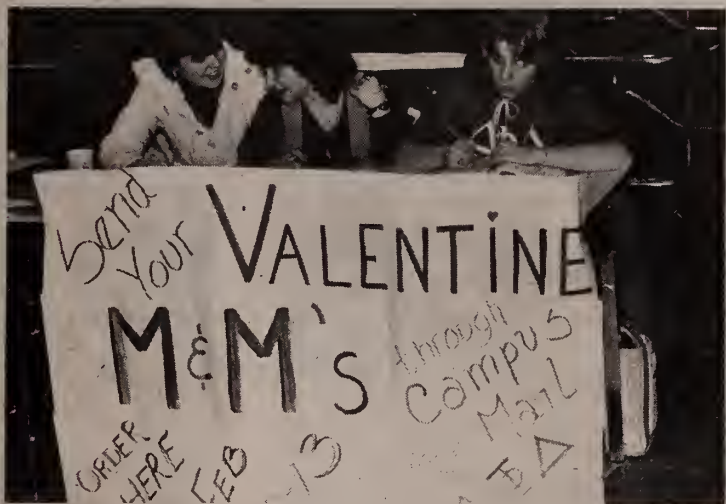 Send
Your
VALENTINE
M&M's
through
Campus
Mail
ORDER
HERE
FEB
-13
Δ